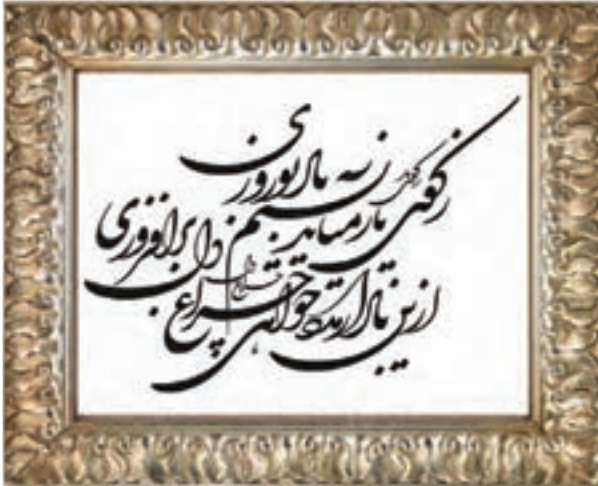 ز کوی یار می‌آید نسیم باد نوروزی
ازین باد ار مدد خواهی چراغ دل برافروزی